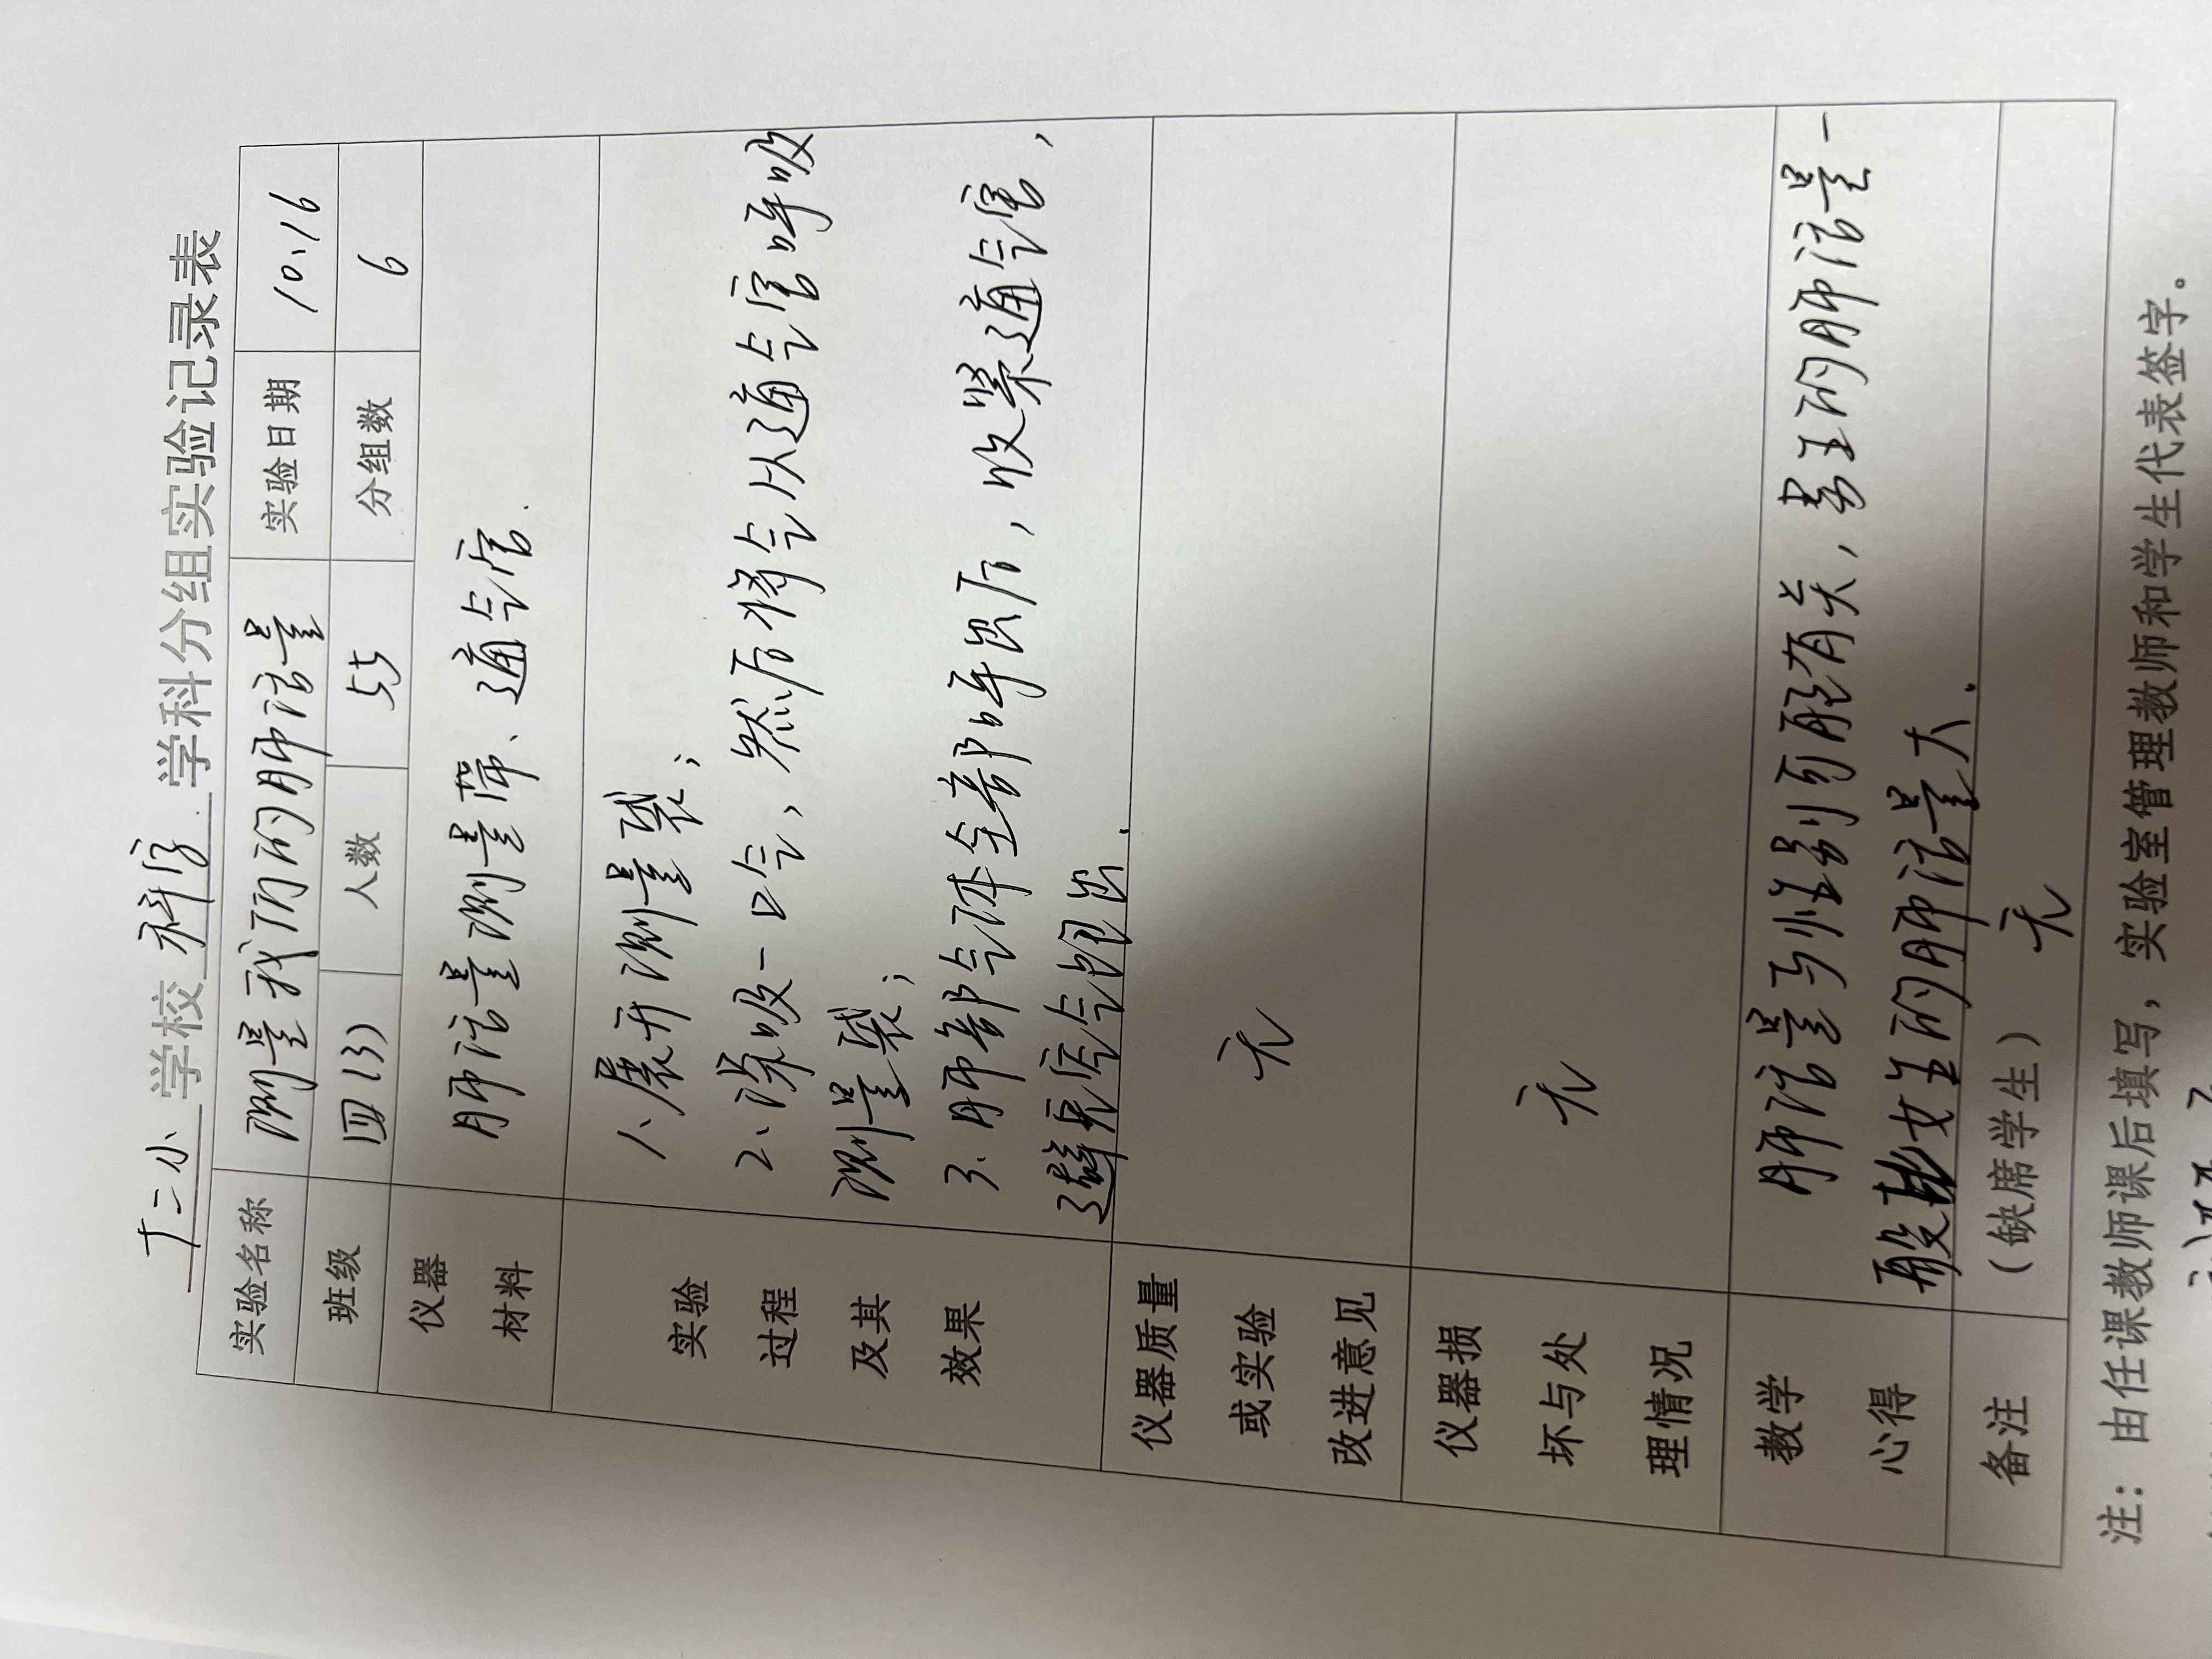 十二小 学校 科学 学科分组实验记录表
实验名称 测量我们的肺活量 实验日期 10、16
班级 四(3) 人数 55 分组数 6
仪器材料 肺活量测量 、通气管.
实验过程及其效果
1、展开测量袋;
2、深吸一口气,然后将气从通气管呼吸
测量袋;
3、肺部气体全部呼出后,收紧通气管,
避免空气 出.
仪器质量或实验改进意见 无
仪器损坏与处理情况 无
教学心得 肺活量与性别 有关,男生的肺活量一
般 女生的肺活量大.
备注 (缺席学生) 无
注:由任课教师课后填写,实验室管理教师和学生代表签字。